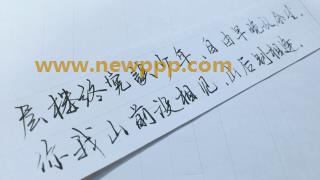 www.newppp.com
层楼终究误少年，自由早晚乱余生。
你我山前没相见，山后别相逢。